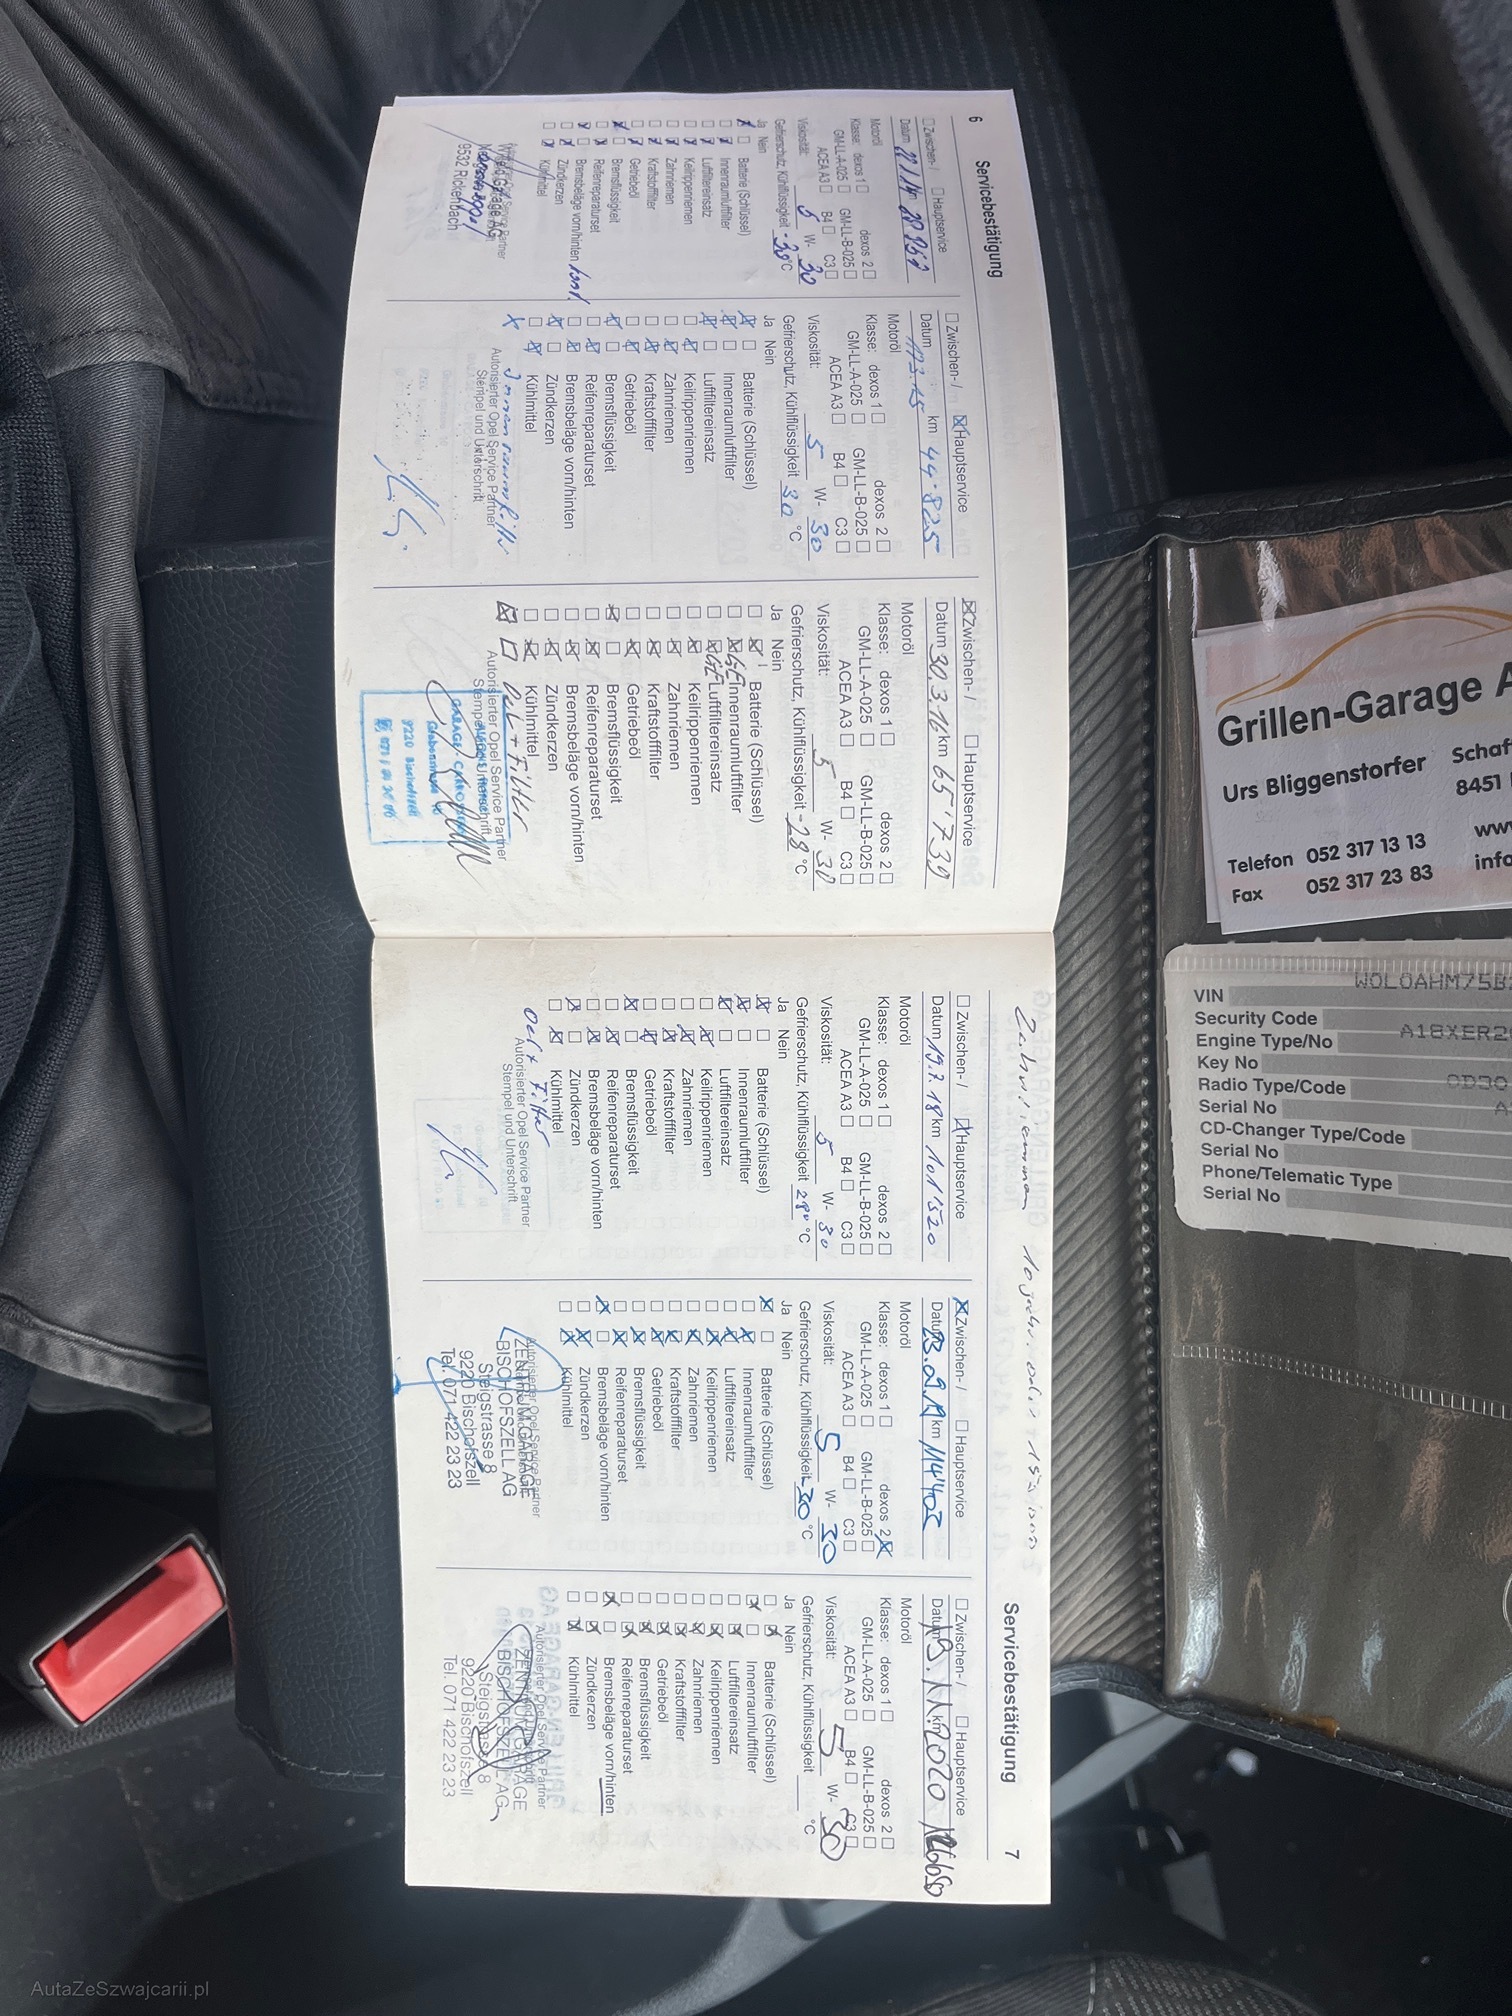 6
Servicebestätigung
☐ Zwischen-/ ☐ Hauptservice
Datum km
Motoröl
Klasse: dexos 1 ☐ dexos 2 ☐
GM-LL-A-025 ☐ GM-LL-B-025 ☐
ACEA A3 ☐ B4 ☐ C3 ☐
Viskosität: 5 W- 30
Gefrierschutz, Kühlflüssigkeit -30 °C
Ja Nein
Batterie (Schlüssel)
Innenraumluftfilter
Luftfiltereinsatz
Keilrippenriemen
Zahnriemen
Kraftstofffilter
Getriebeöl
Bremsflüssigkeit
Reifenreparaturset
Bremsbeläge vorn/hinten
Zündkerzen
Kühlmittel
9532 Rickenbach
☐ Zwischen-/ ☒ Hauptservice
Datum km 44.825
Motoröl
Klasse: dexos 1 ☐ dexos 2 ☐
GM-LL-A-025 ☐ GM-LL-B-025 ☐
ACEA A3 ☐ B4 ☐ C3 ☐
Viskosität: 5 W- 30
Gefrierschutz, Kühlflüssigkeit 30 °C
Ja Nein
Batterie (Schlüssel)
Innenraumluftfilter
Luftfiltereinsatz
Keilrippenriemen
Zahnriemen
Kraftstofffilter
Getriebeöl
Bremsflüssigkeit
Reifenreparaturset
Bremsbeläge vorn/hinten
Zündkerzen
Kühlmittel
Autorisierter Opel Service Partner
Stempel und Unterschrift
☒ Zwischen-/ ☐ Hauptservice
Datum 30.3.16 km 65'739
Motoröl
Klasse: dexos 1 ☐ dexos 2 ☐
GM-LL-A-025 ☐ GM-LL-B-025 ☐
ACEA A3 ☐ B4 ☐ C3 ☐
Viskosität: 5 W- 30
Gefrierschutz, Kühlflüssigkeit -28 °C
Ja Nein
Batterie (Schlüssel)
Innenraumluftfilter
Luftfiltereinsatz
Keilrippenriemen
Zahnriemen
Kraftstofffilter
Getriebeöl
Bremsflüssigkeit
Reifenreparaturset
Bremsbeläge vorn/hinten
Zündkerzen
Kühlmittel
Oel + Filter
Autorisierter Opel Service Partner
Zahnriemen 10 Jahre oder
Servicebestätigung
7
☐ Zwischen-/ ☒ Hauptservice
Datum 19.7.18 km 101'520
Motoröl
Klasse: dexos 1 ☐ dexos 2 ☐
GM-LL-A-025 ☐ GM-LL-B-025 ☐
ACEA A3 ☐ B4 ☐ C3 ☐
Viskosität: 5 W- 30
Gefrierschutz, Kühlflüssigkeit 28° °C
Ja Nein
Batterie (Schlüssel)
Innenraumluftfilter
Luftfiltereinsatz
Keilrippenriemen
Zahnriemen
Kraftstofffilter
Getriebeöl
Bremsflüssigkeit
Reifenreparaturset
Bremsbeläge vorn/hinten
Zündkerzen
Kühlmittel
Oel + Filter
Autorisierter Opel Service Partner
Stempel und Unterschrift
☒ Zwischen-/ ☐ Hauptservice
Datum km
Motoröl
Klasse: dexos 1 ☐ dexos 2 ☒
GM-LL-A-025 ☐ GM-LL-B-025 ☐
ACEA A3 ☐ B4 ☐ C3 ☐
Viskosität: 5 W- 30
Gefrierschutz, Kühlflüssigkeit -30 °C
Ja Nein
Batterie (Schlüssel)
Innenraumluftfilter
Luftfiltereinsatz
Keilrippenriemen
Zahnriemen
Kraftstofffilter
Getriebeöl
Bremsflüssigkeit
Reifenreparaturset
Bremsbeläge vorn/hinten
Zündkerzen
Kühlmittel
Autorisierter Opel Service Partner
BISCHOFSZELL AG
Steigstrasse 8
9220 Bischofszell
Tel. 071 422 23 23
☐ Zwischen-/ ☐ Hauptservice
Datum km
Motoröl
Klasse: dexos 1 ☐ dexos 2 ☐
GM-LL-A-025 ☐ GM-LL-B-025 ☐
ACEA A3 ☐ B4 ☐ C3 ☐
Viskosität: 5 W- 30
Gefrierschutz, Kühlflüssigkeit °C
Ja Nein
Batterie (Schlüssel)
Innenraumluftfilter
Luftfiltereinsatz
Keilrippenriemen
Zahnriemen
Kraftstofffilter
Getriebeöl
Bremsflüssigkeit
Reifenreparaturset
Bremsbeläge vorn/hinten
Zündkerzen
Kühlmittel
Autorisierter Opel Service Partner
BISCHOFSZELL AG
9220 Bischofszell
Tel. 071 422 23 23
Grillen-Garage A
Urs Bliggenstorfer
Schaf
8451
Telefon 052 317 13 13
Fax 052 317 23 83
www
info
VIN W0L0AHM75B
Security Code
Engine Type/No A18XER2
Key No
Radio Type/Code CD30
Serial No
CD-Changer Type/Code
Serial No
Phone/Telematic Type
Serial No
AutaZeSzwajcarii.pl